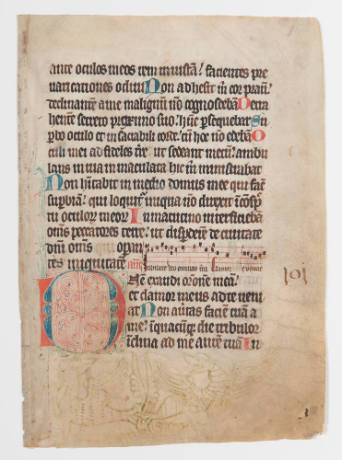 ante oculos meos rem iniustā facientes pre
uaricationes odiui Non adhesit m̄ cor prauū
declinantē a me malignū nō cognoscebā Detra
hentē secreto proximo suo hūc persequebar Su
perbo oculo et insaciabili corde cū hoc nō edebā O
culi mei ad fideles t̄re ut sedeant mecū ambu
lans in uia inmaculata hic m̄ ministrabat
Non habitabit in medio domus mee qui facit
supbiā qui loquitur iniqua nō direxit ī ɔspc̄u
oculorum meorum In matutino interficiebā
om̄s peccatores terre ut disperdē de ciuitate
dn̄i om̄s operan
tes iniquitatē
Domine exaudi orōnē meā
et clamor meus ad te veni
at Non auertas faciē tuā a
me in quacūque die tribulor
inclina ad me aurē tuā In
101